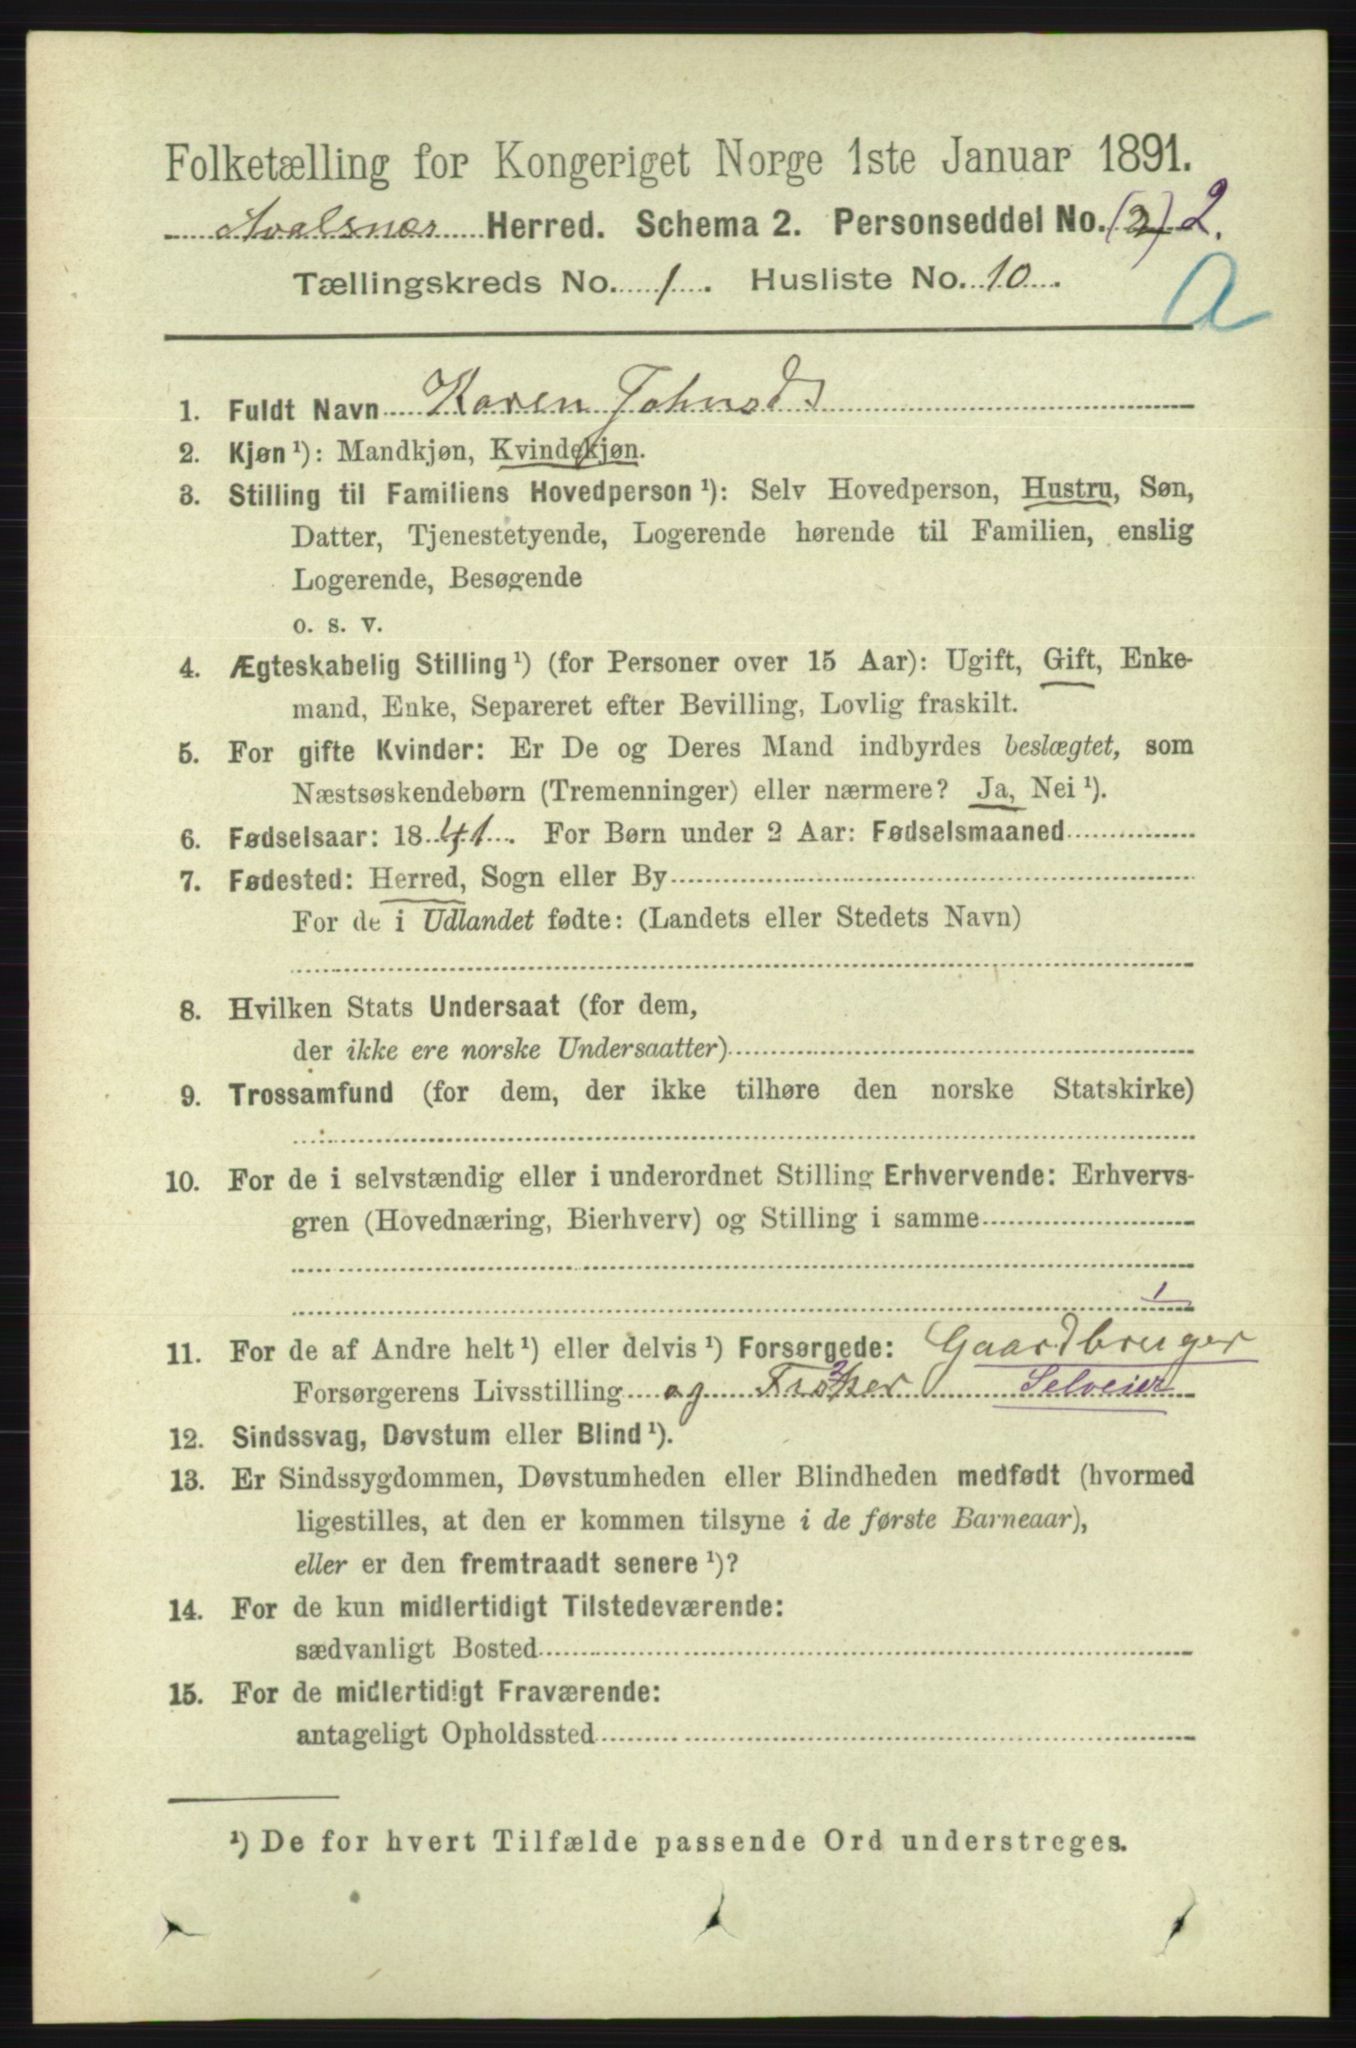 Folketælling for Kongeriget Norge 1ste Januar 1891.
Avalsnæs Herred. Schema 2. Personseddel No. (2) 2.
Tællingskreds No. 1. Husliste No. 10.
A
1. Fuldt Navn Karen Johnsd
2. Kjøn ¹): Mandkjøn, Kvindekjøn.
3. Stilling til Familiens Hovedperson ¹): Selv Hovedperson, Hustru, Søn,
Datter, Tjenestetyende, Logerende hørende til Familien, enslig
Logerende, Besøgende
o. s. v.
4. Ægteskabelig Stilling ¹) (for Personer over 15 Aar): Ugift, Gift, Enke-
mand, Enke, Separeret efter Bevilling, Lovlig fraskilt.
5. For gifte Kvinder: Er De og Deres Mand indbyrdes beslægtet, som
Næstsøskendebørn (Tremenninger) eller nærmere? Ja, Nei ¹).
6. Fødselsaar: 1841. For Børn under 2 Aar: Fødselsmaaned
7. Fødested: Herred, Sogn eller By
For de i Udlandet fødte: (Landets eller Stedets Navn)
8. Hvilken Stats Undersaat (for dem,
der ikke ere norske Undersaatter)
9. Trossamfund (for dem, der ikke tilhøre den norske Statskirke)
10. For de i selvstændig eller i underordnet Stilling Erhvervende: Erhvervs-
gren (Hovednæring, Bierhverv) og Stilling i samme
1
11. For de af Andre helt ¹) eller delvis ¹) Forsørgede: Gaardbruger
Forsørgerens Livsstilling og Fisker Selveier
12. Sindssvag, Døvstum eller Blind ¹).
13. Er Sindssygdommen, Døvstumheden eller Blindheden medfødt (hvormed
ligestilles, at den er kommen tilsyne i de første Barneaar),
eller er den fremtraadt senere ¹)?
14. For de kun midlertidigt Tilstedeværende:
sædvanligt Bosted
15. For de midlertidigt Fraværende:
antageligt Opholdssted
¹) De for hvert Tilfælde passende Ord understreges.